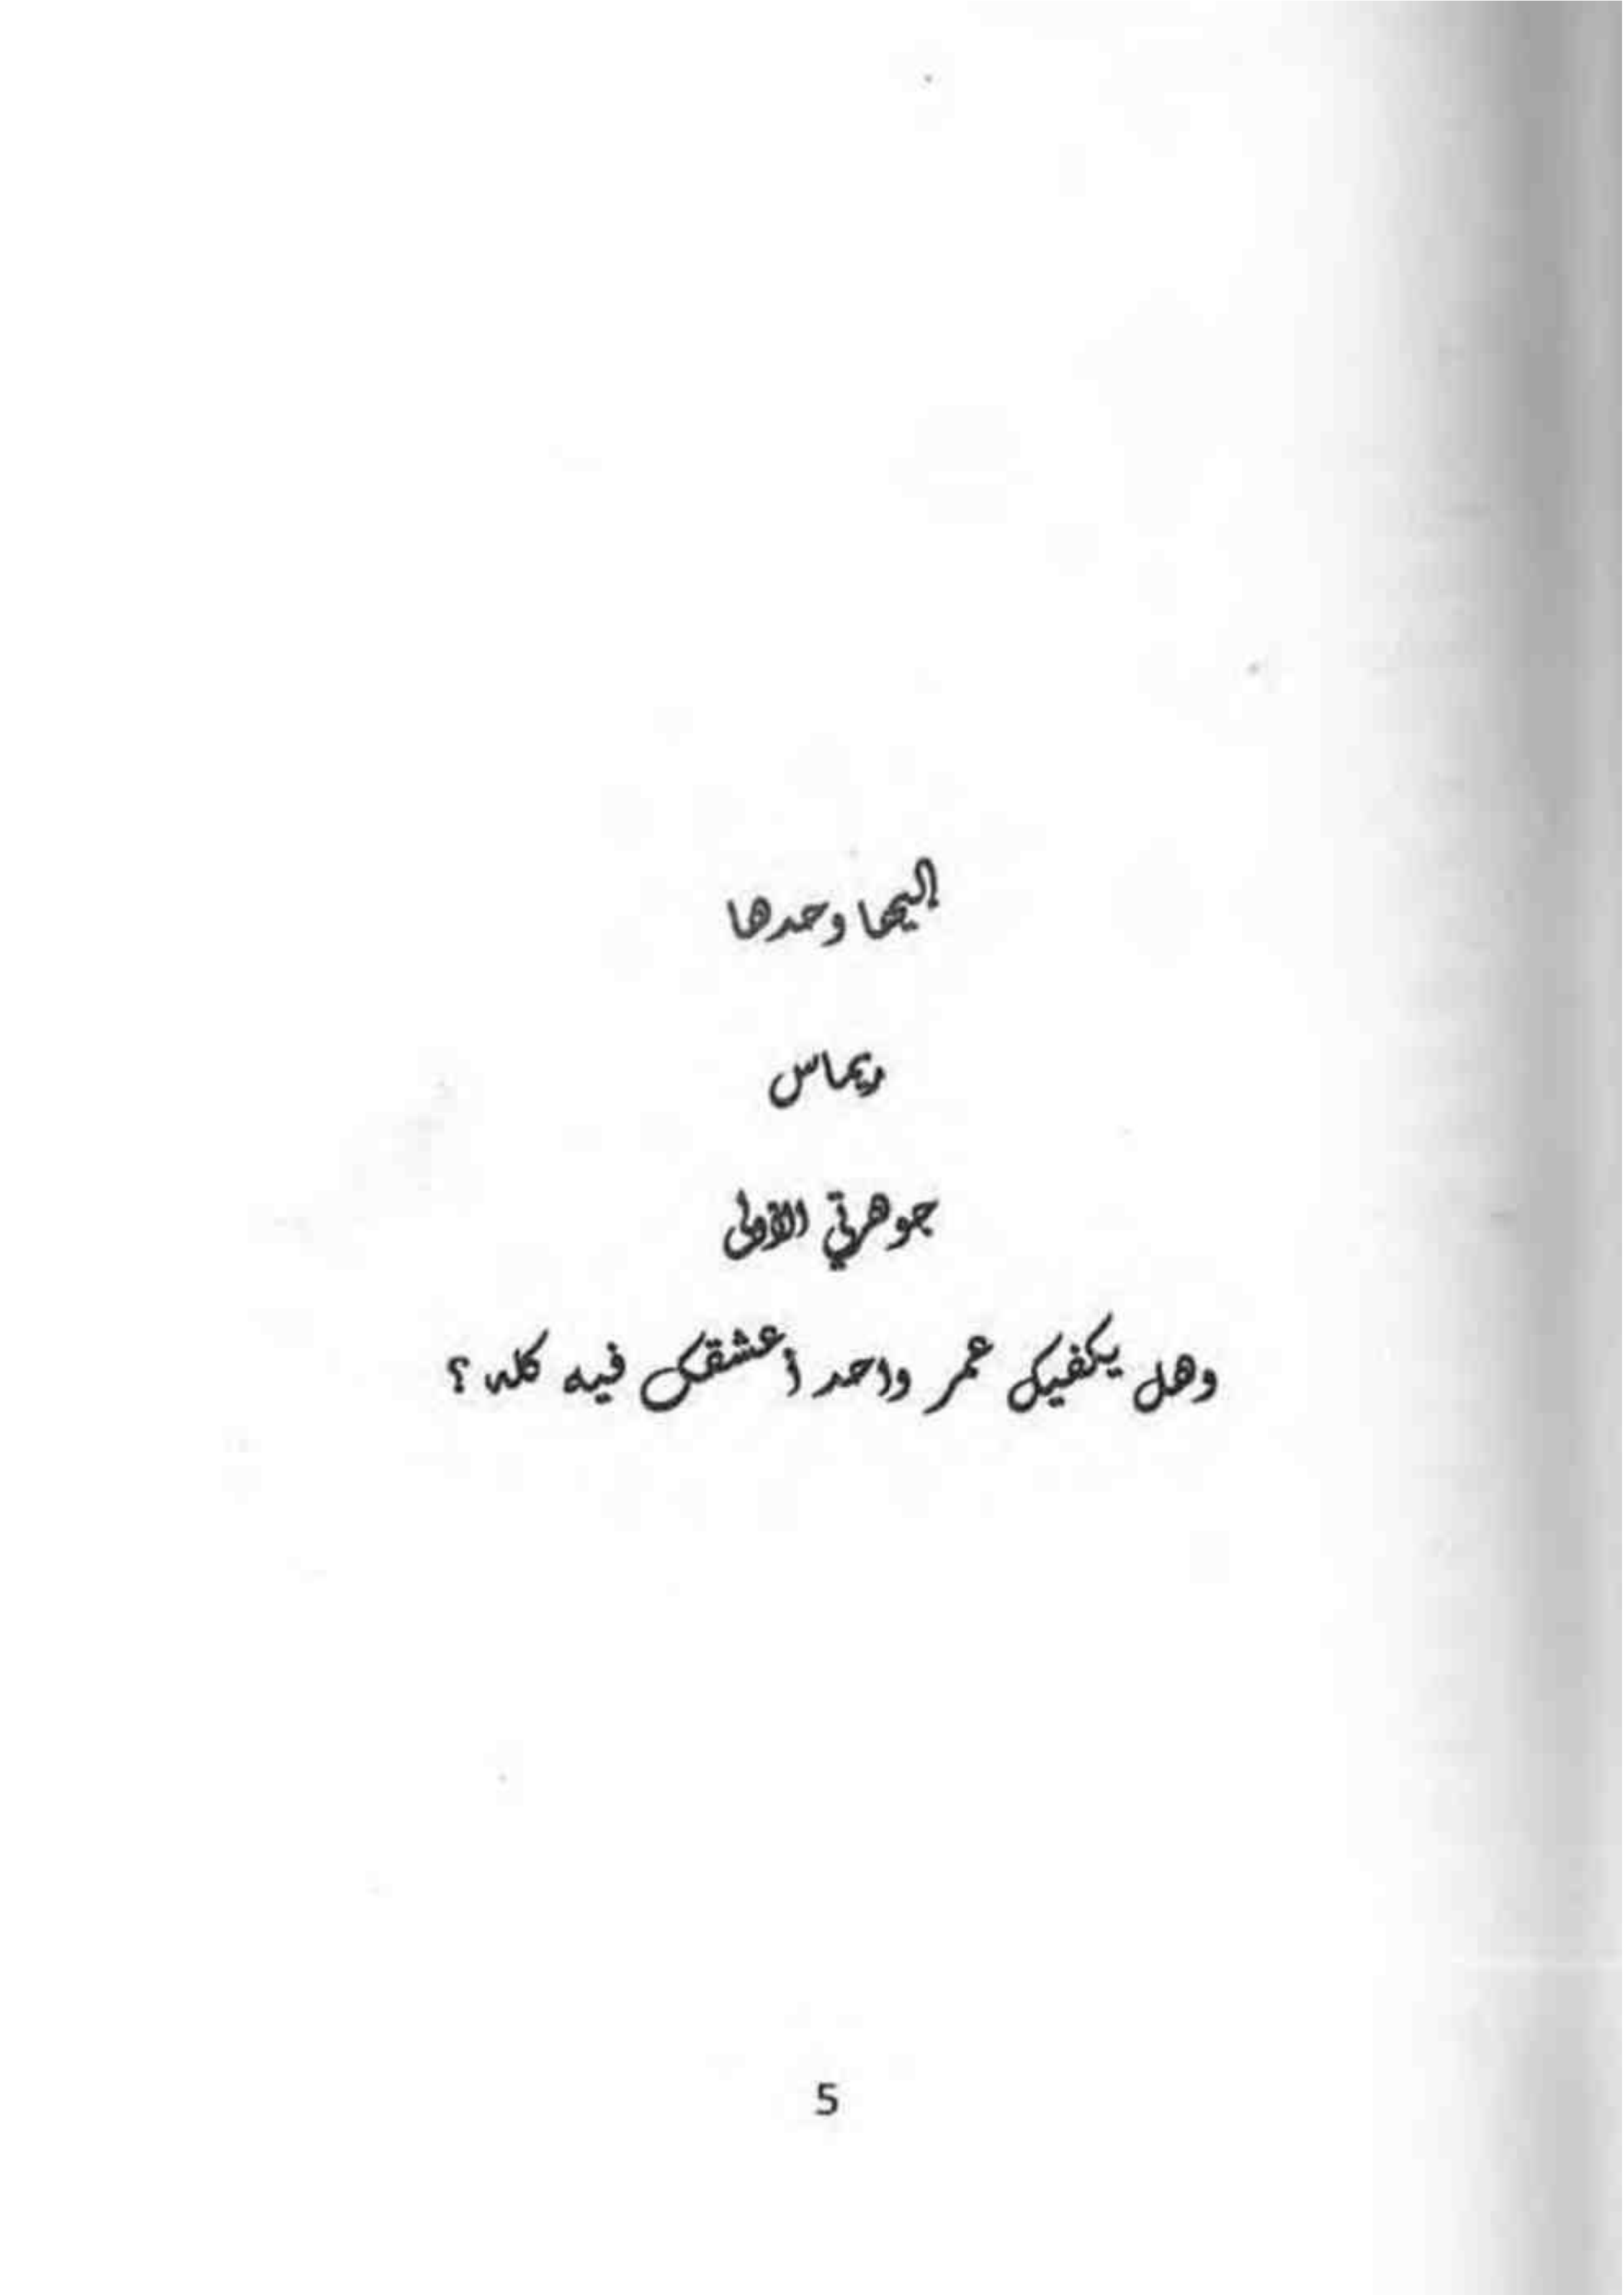 إليها وحدها
ريماس
جوهرتي الأولى
وهل يكفيك عمر واحد أعشقك فيه كله؟
5